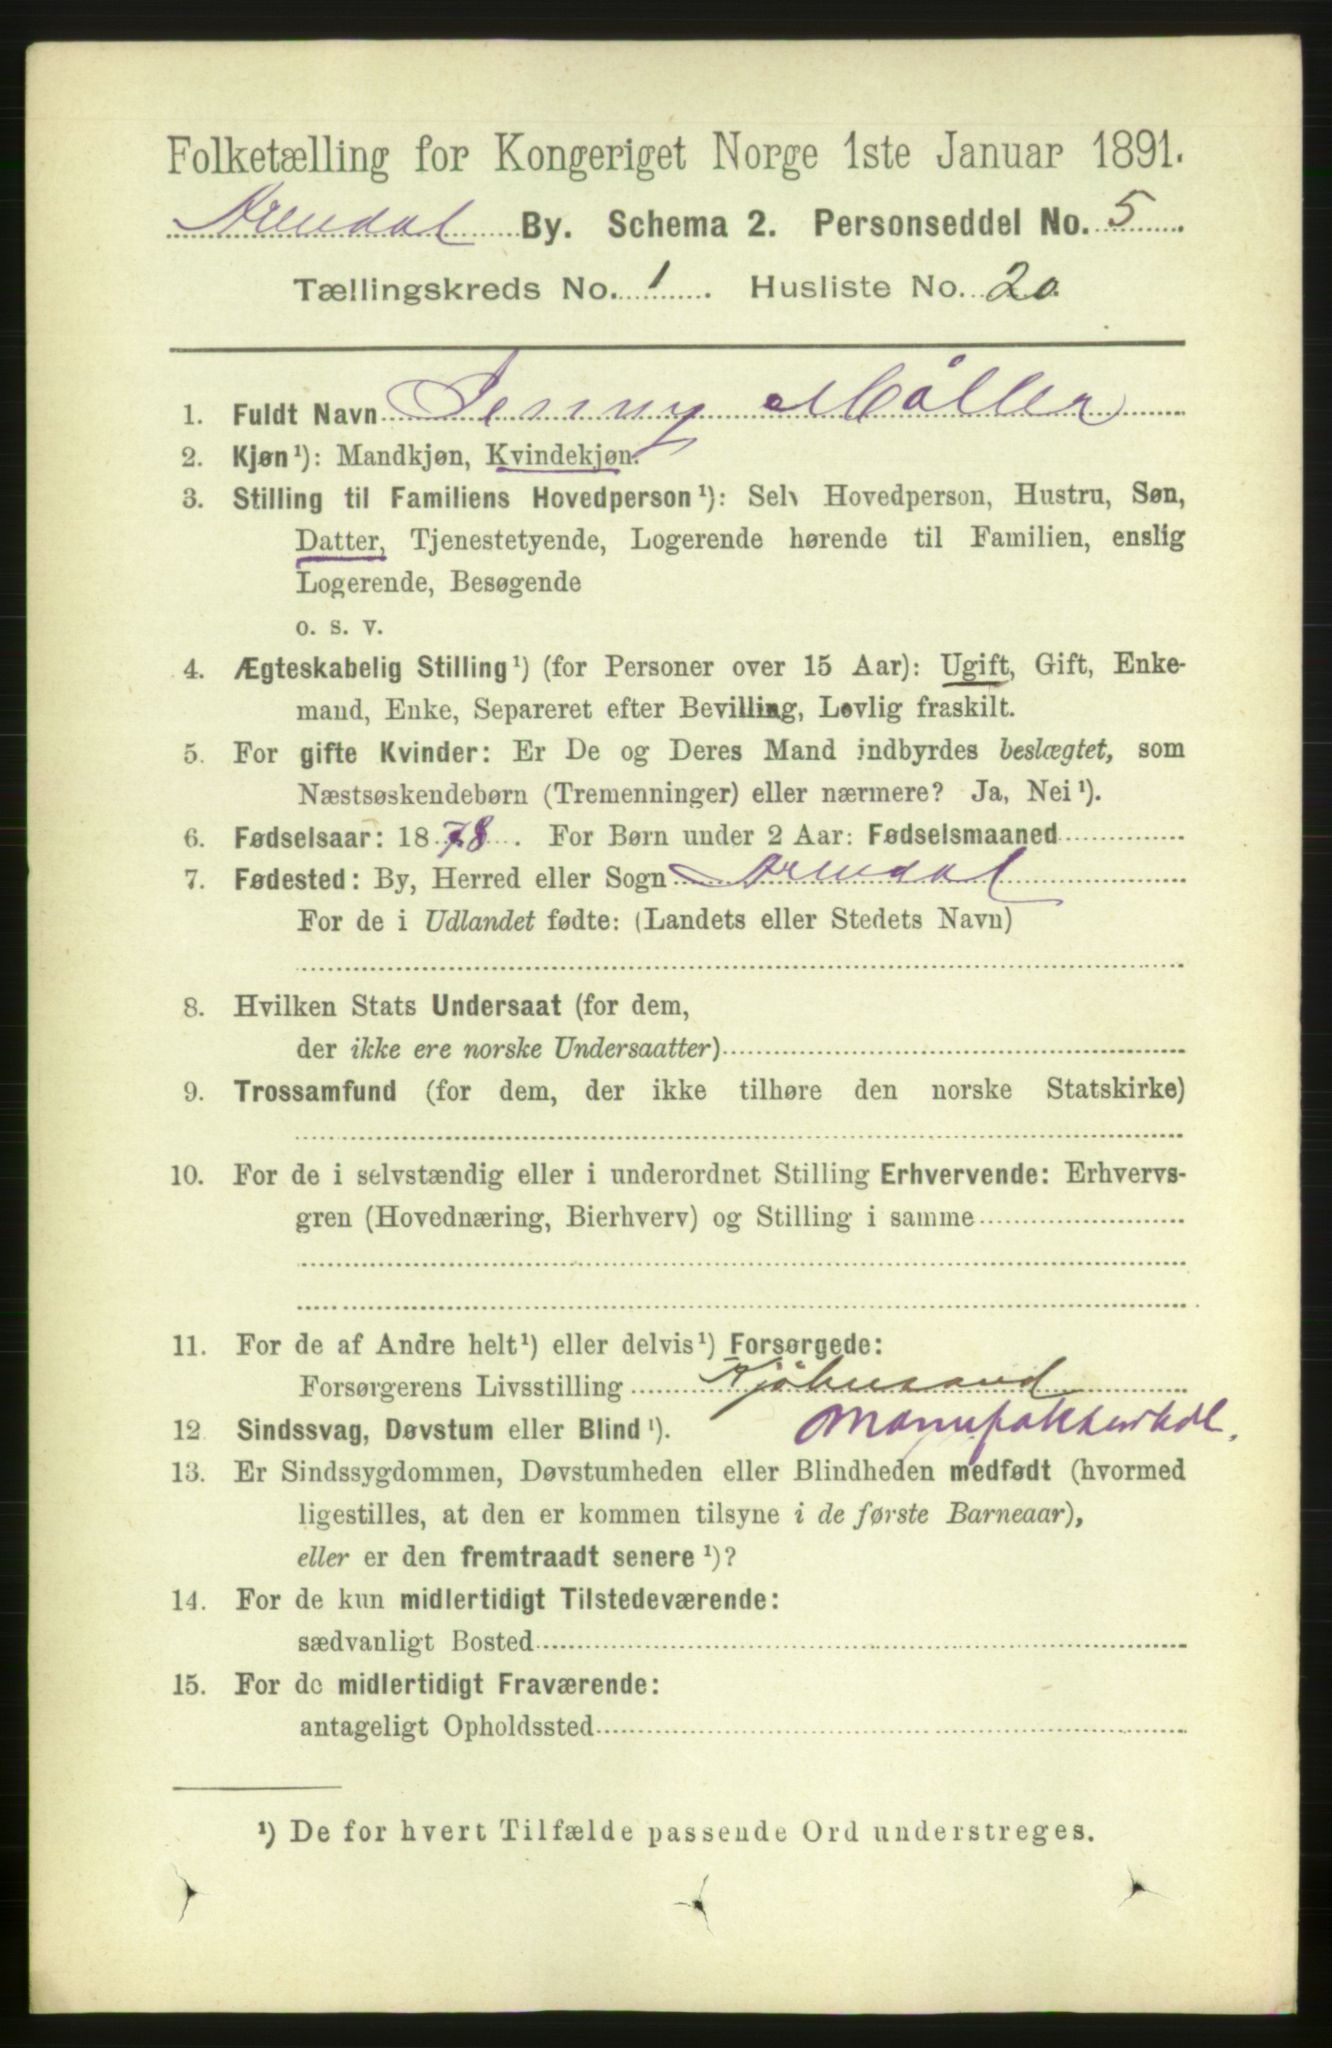 Folketælling for Kongeriget Norge 1ste Januar 1891.
Arendal By. Schema 2. Personseddel No. 5
Tællingskreds No. 1. Husliste No. 20.
1. Fuldt Navn Jenny Møller
2. Kjøn¹): Mandkjøn, Kvindekjøn.
3. Stilling til Familiens Hovedperson¹): Selv Hovedperson, Hustru, Søn,
Datter, Tjenestetyende, Logerende hørende til Familien, enslig
Logerende, Besøgende
o. s. v.
4. Ægteskabelig Stilling¹) (for Personer over 15 Aar): Ugift, Gift, Enke-
mand, Enke, Separeret efter Bevilling, Lovlig fraskilt.
5. For gifte Kvinder: Er De og Deres Mand indbyrdes beslægtet, som
Næstsøskendebørn (Tremenninger) eller nærmere? Ja, Nei¹).
6. Fødselsaar: 1878. For Børn under 2 Aar: Fødselsmaaned
7. Fødested: By, Herred eller Sogn Arendal
For de i Udlandet fødte: (Landets eller Stedets Navn)
8. Hvilken Stats Undersaat (for dem,
der ikke ere norske Undersaatter)
9. Trossamfund (for dem, der ikke tilhøre den norske Statskirke)
10. For de i selvstændig eller i underordnet Stilling Erhvervende: Erhvervs-
gren (Hovednæring, Bierhverv) og Stilling i samme
11. For de af Andre helt¹) eller delvis¹) Forsørgede:
Forsørgerens Livsstilling Kjøbmand
Manufakturhdl.
12 Sindssvag, Døvstum eller Blind¹).
13. Er Sindssygdommen, Døvstumheden eller Blindheden medfødt (hvormed
ligestilles, at den er kommen tilsyne i de første Barneaar),
eller er den fremtraadt senere¹)?
14. For de kun midlertidigt Tilstedeværende:
sædvanligt Bosted
15. For de midlertidigt Fraværende:
antageligt Opholdssted
¹) De for hvert Tilfælde passende Ord understreges.